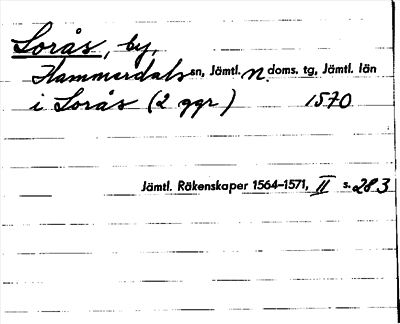 Lorås, by,
Hammerdals sn, Jämtl. N. doms. tg, Jämtl. län
i Lorås (2 ggr) 1570
Jämtl. Räkenskaper 1564–1571, II s. 283